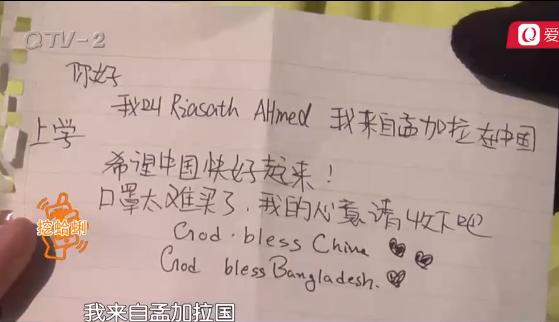 QTV-2
爱
你好
我叫 Riasath AHmed 我来自孟加拉在中国
上学
希望中国快好起来！
口罩太难买了，我的心意请收下吧
God bless China
God bless Bangladesh.
挖蛤蜊
我来自孟加拉国